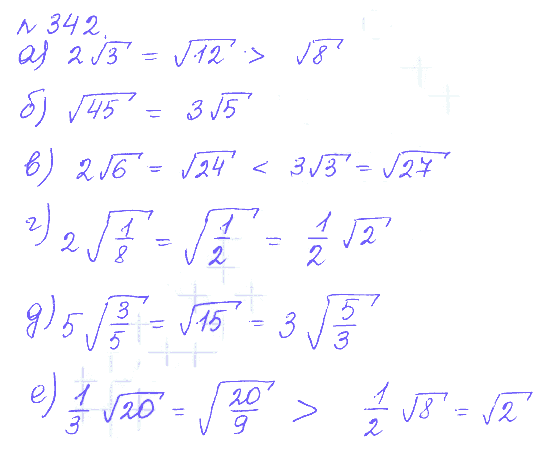 № 342.
а) 2√3 = √12 > √8
б) √45 = 3√5
в) 2√6 = √24 < 3√3 = √27
г) 2√(1/8) = √(1/2) = 1/2 √2
д) 5√(3/5) = √15 = 3√(5/3)
е) 1/3 √20 = √(20/9) > 1/2 √8 = √2